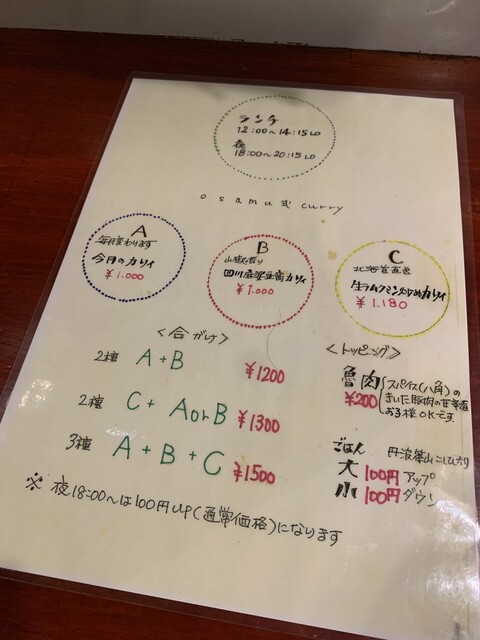 ランチ
12:00〜14:15LO
夜
18:00〜20:15LO
osamu式curry
A
毎月変わります
今月のカリィ
¥1.000
B
山椒香り
四川麻婆豆腐カリィ
¥1.000
C
北海道直送
生ラムクミン炒めカリィ
¥1.180
<合がけ>
2種 A+B ¥1200
2種 C+AorB ¥1300
3種 A+B+C ¥1500
<トッピング>
魯肉 ¥200
スパイス(八角)の
きいた豚肉の甘辛煮
お子様OKです。
ごはん 丹波篠山こしひかり
大 100円アップ
小 100円ダウン
※ 夜18:00〜は100円UP(通常価格)になります